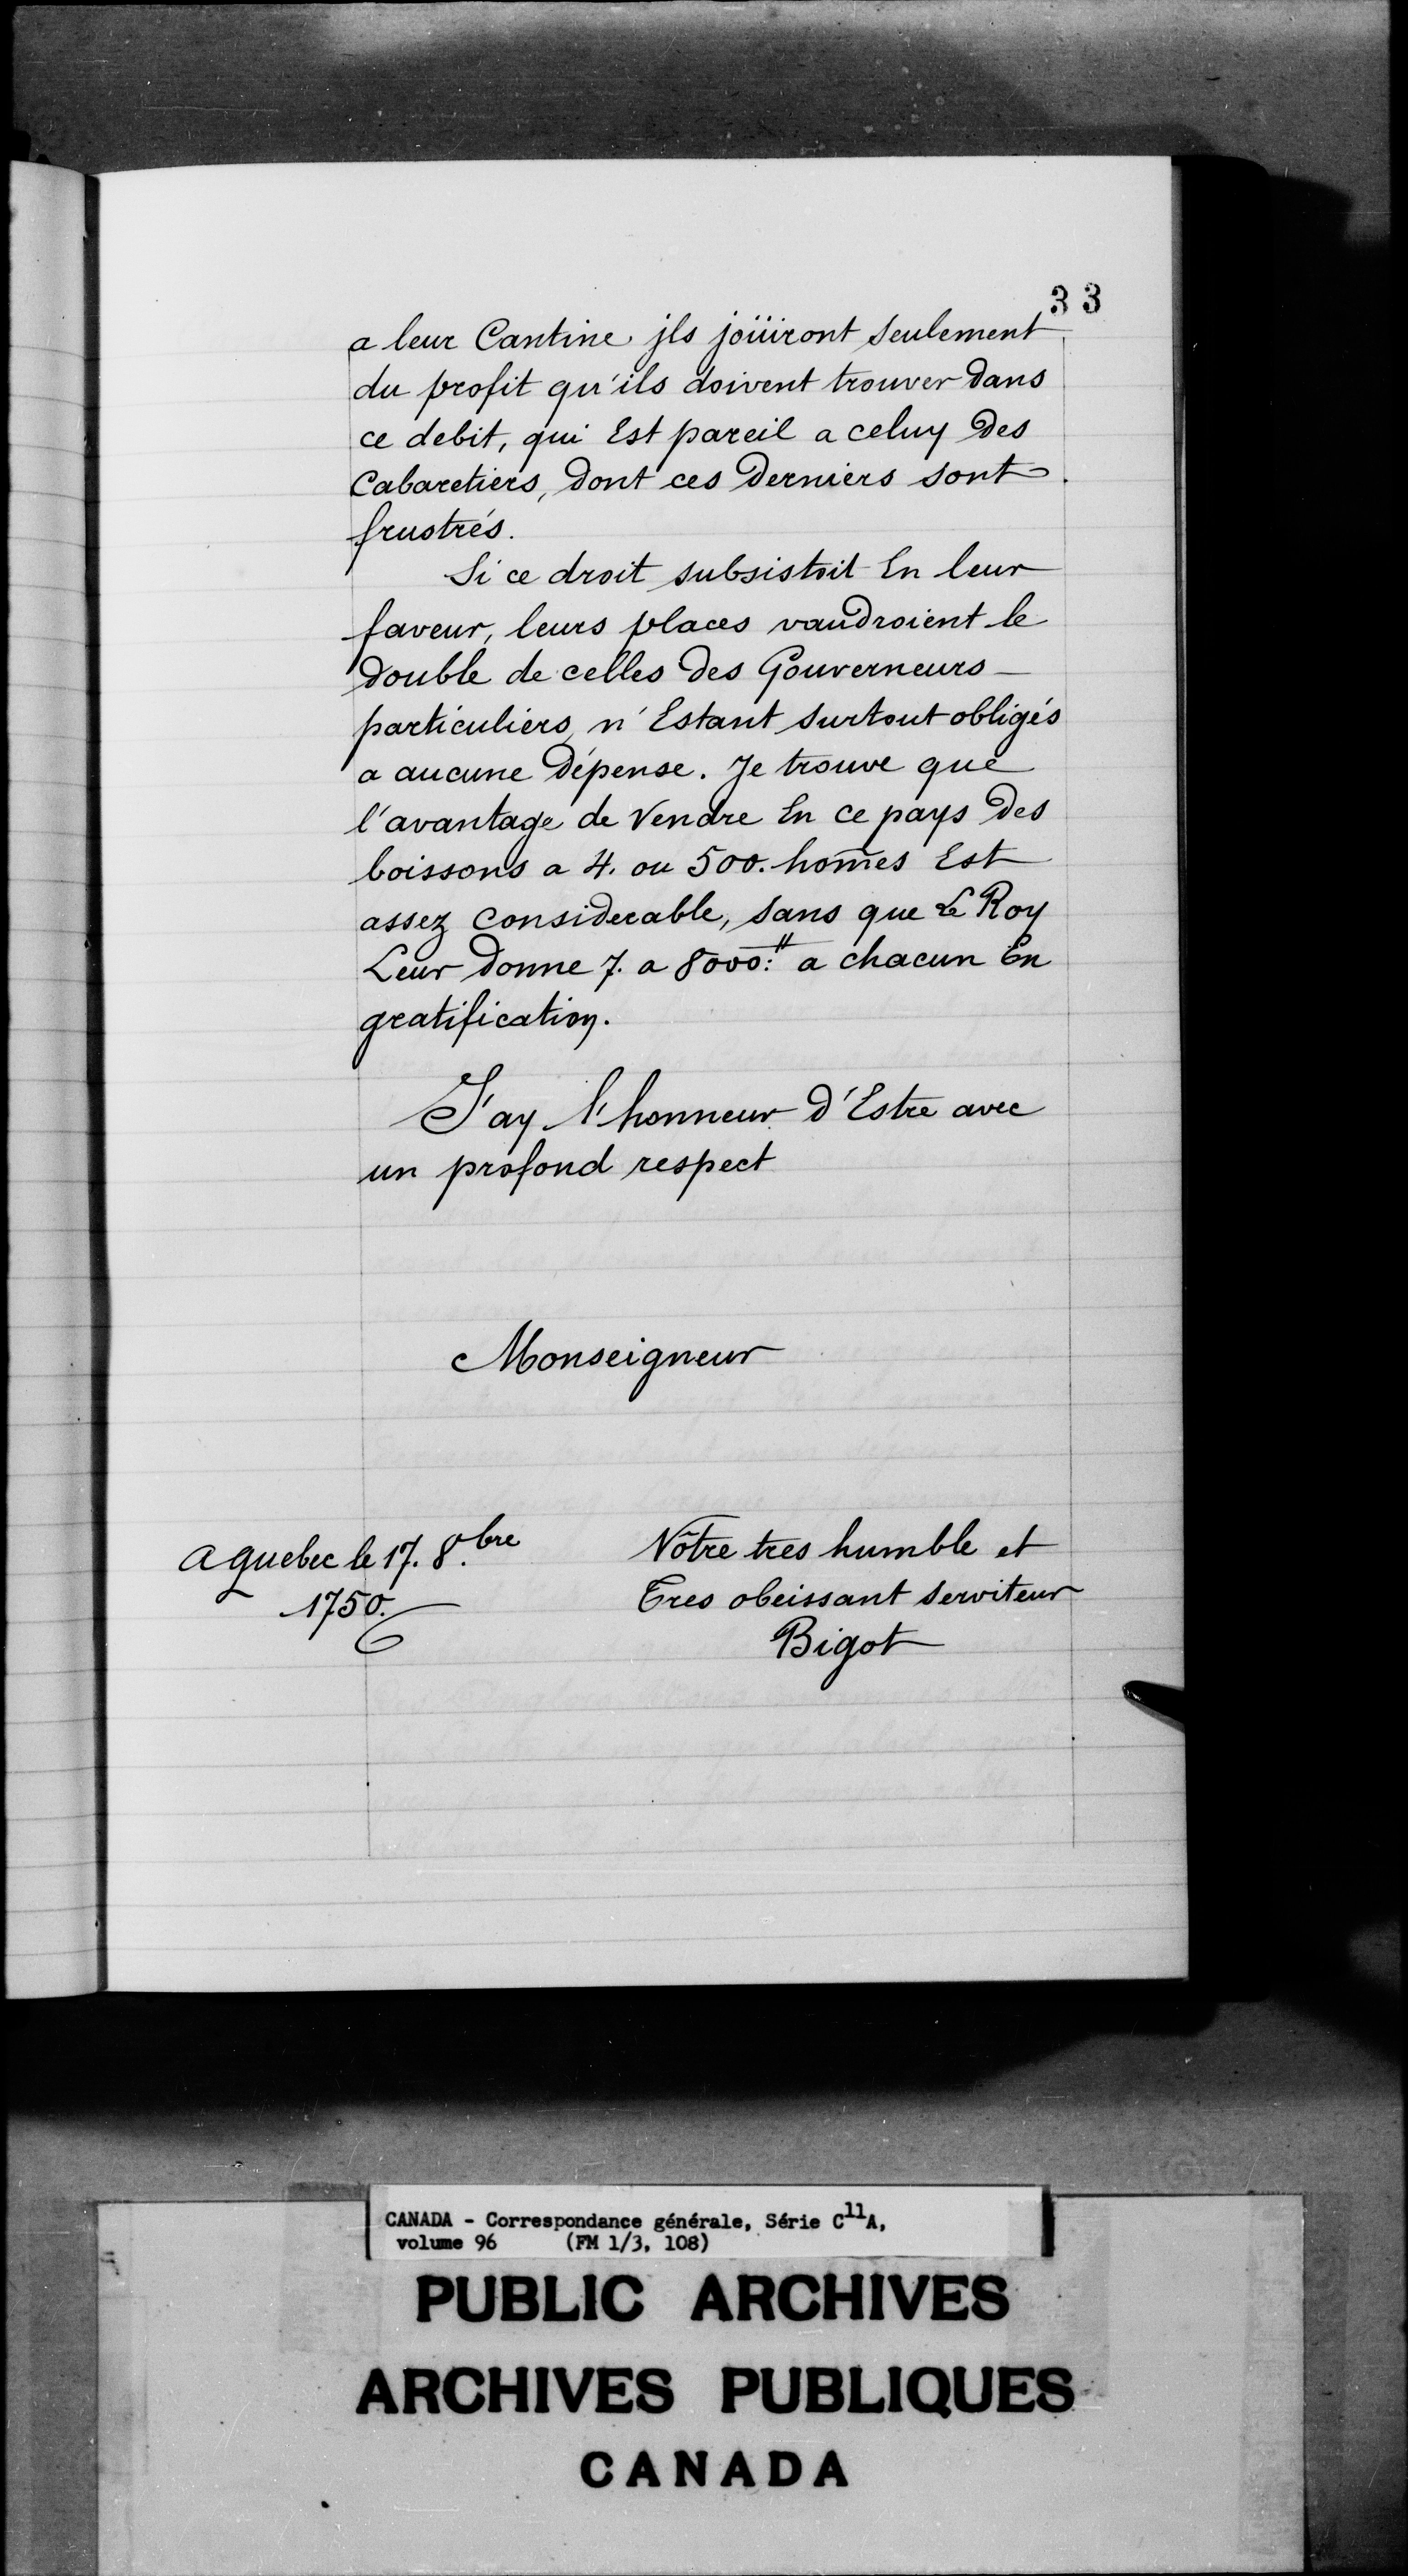 33
a leur Cantine jls joüiront seulement
du profit qu'ils doivent trouver dans
ce debit, qui Est pareil a celuy des
Cabaretiers, dont ces derniers sont
frustrés.
Si ce droit subsistoit En leur
faveur, leurs places vaudroient le
double de celles des Gouverneurs
particuliers, n'Estant surtout obligés
a aucune dépense. Je trouve que
l'avantage de Vendre En ce pays des
boissons a 4. ou 500. hom̃es Est
assez considerable, sans que Le Roy
Leur donne 7. a 8000:" a chacun En
gratification.
J'ay l'honneur d'Estre avec
un profond respect
Monseigneur
a quebec le 17. 8.bre
1750.
Vôtre tres humble et
Tres obeissant serviteur
Bigot
CANADA - Correspondance générale, Série C11A,
volume 96 (FM 1/3, 108)
PUBLIC ARCHIVES
ARCHIVES PUBLIQUES
CANADA